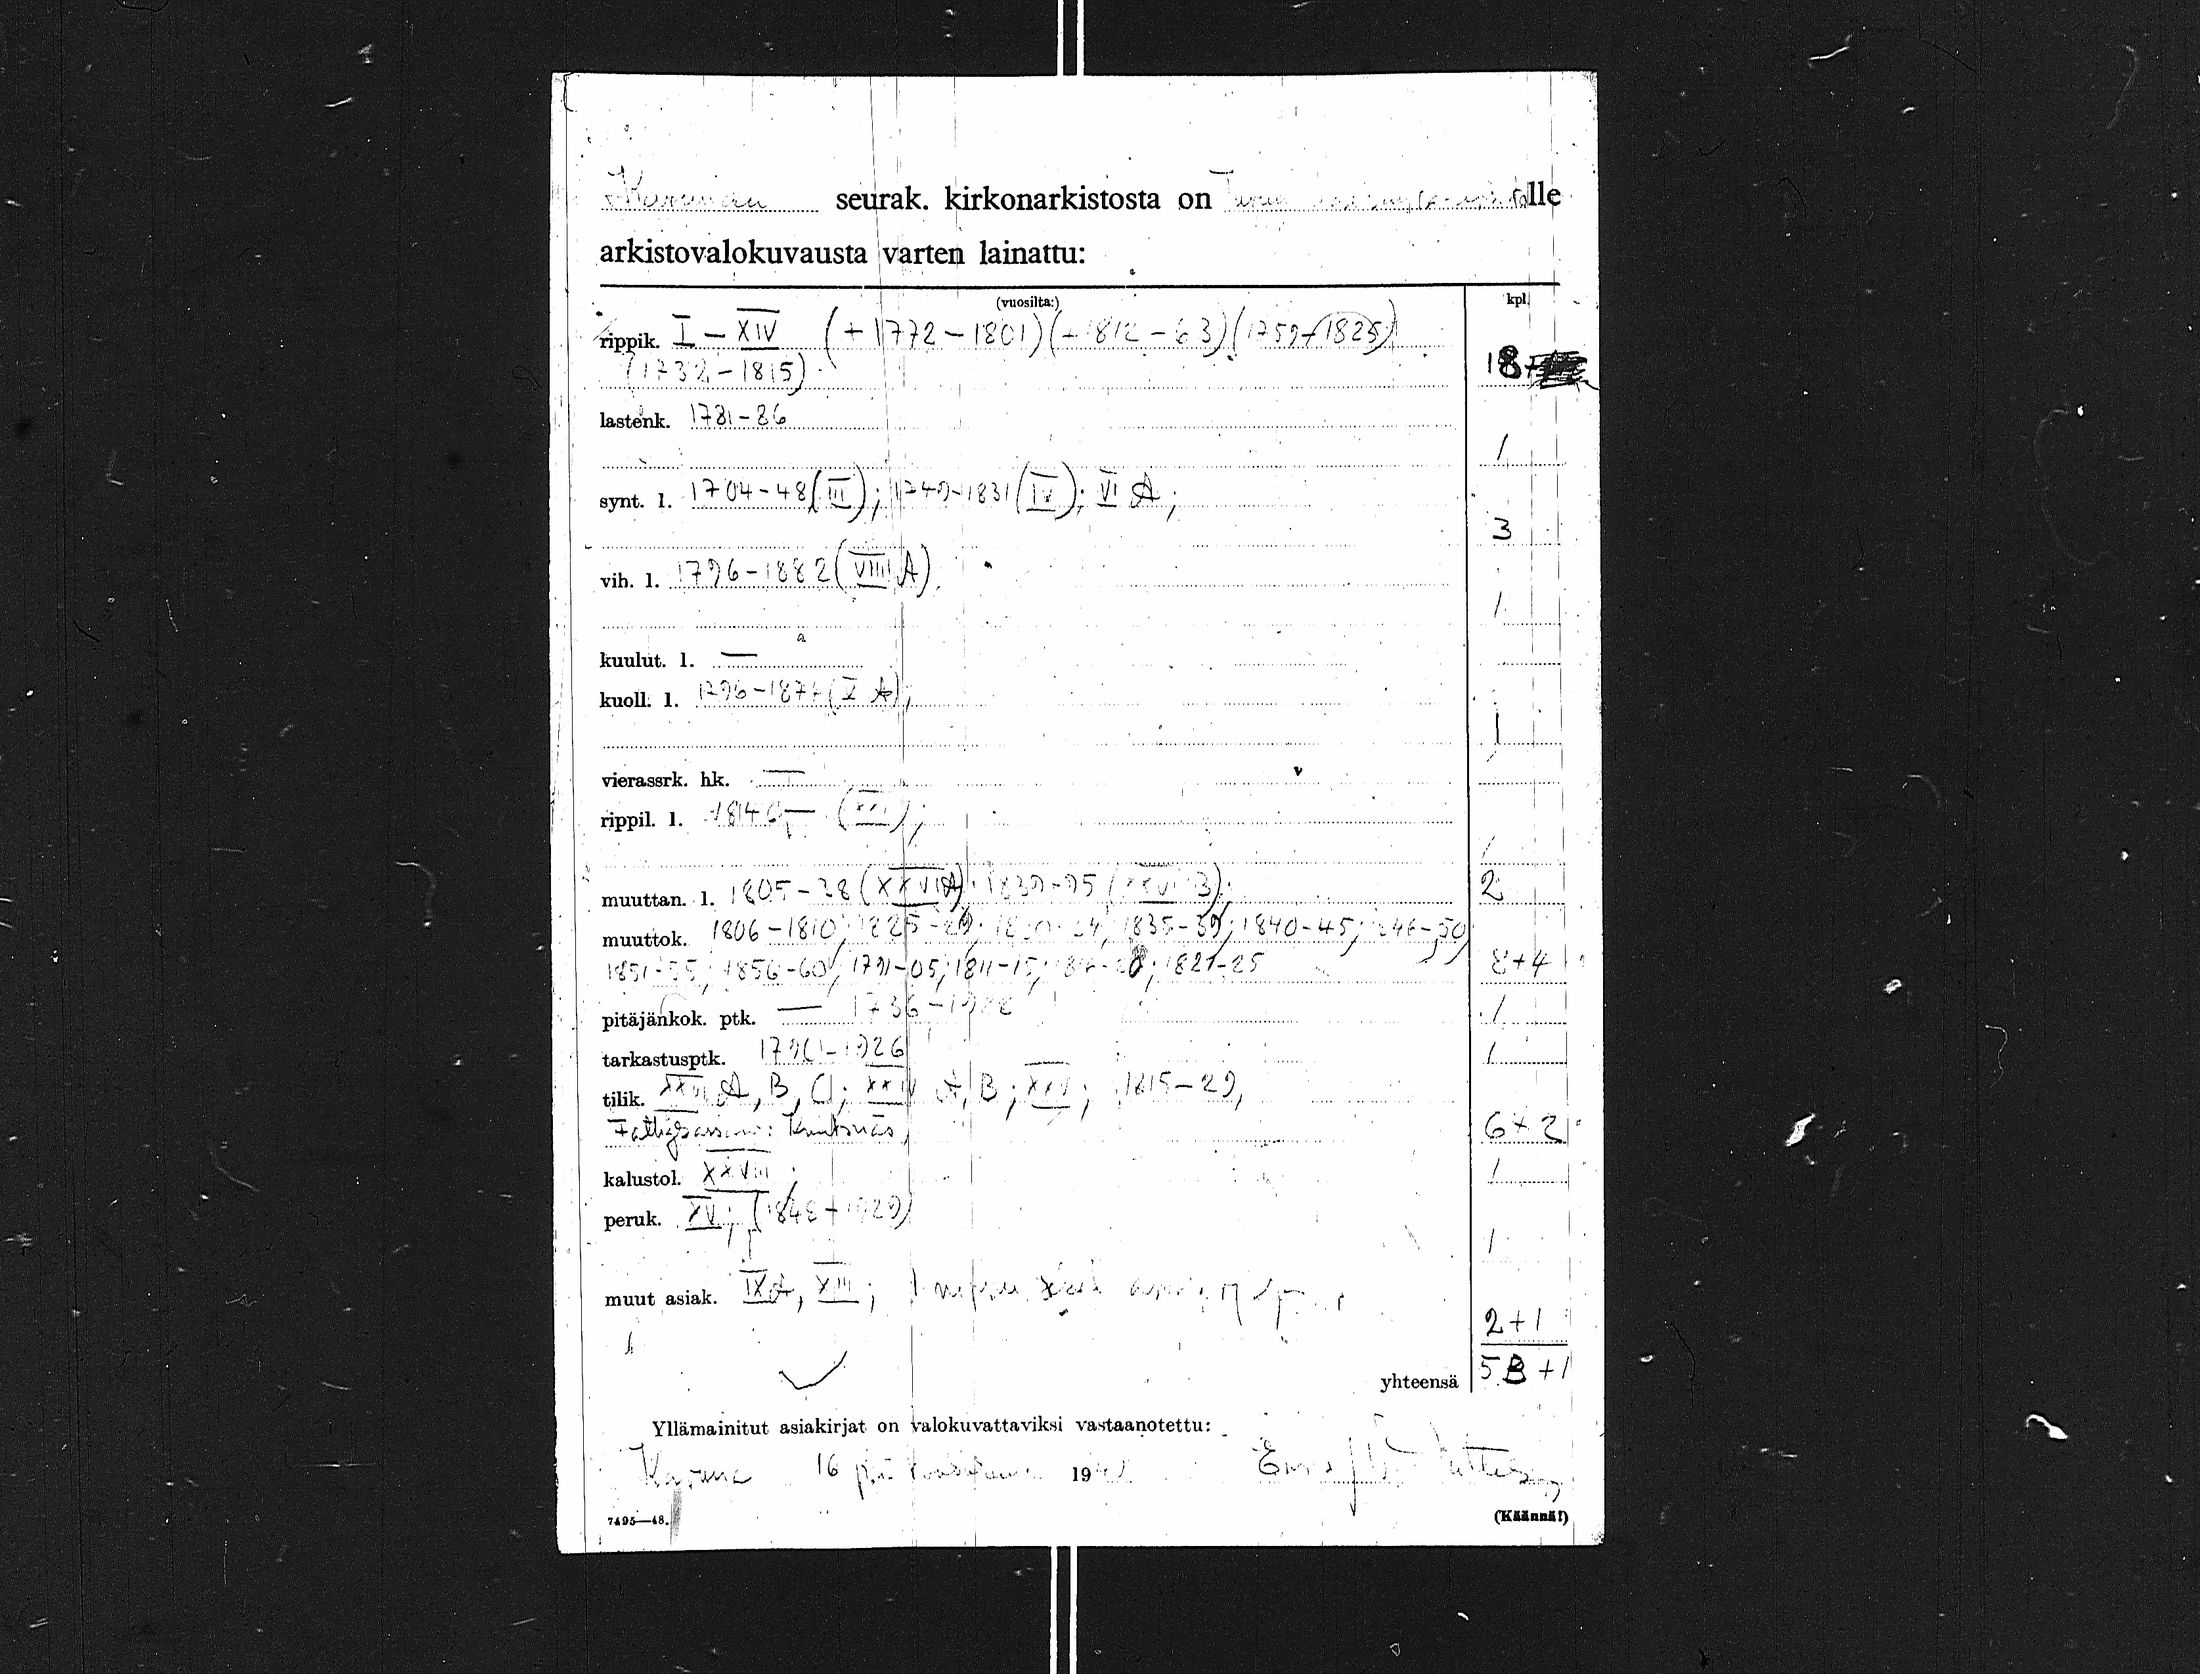 Karunan seurak. kirkonarkistosta on Turun lle
arkistovalokuvausta varten lainattu:
(vuosilta:) kpl.
rippik. I – XIV (+ 1772 – 1801) (+ 1812 – 63) (1759 – 1825)
(1732 – 1815) 18+
lastenk. 1781 – 86
1
synt. l. 1704 – 48 (III); 1749 – 1831 (IV); VI A;
3
vih. l. 1796 – 1882 (VIII A)
1
kuulut. l. —
kuoll. l. 1796 – 1877 (X A);
1
vierassrk. hk. —
rippil. l. 1846 —
1
muuttan. l. 1805 – 38 (XXVI A); 1839 – 95 (XXVI B); 2
muuttok. 1806 – 1810; 1825 – 29; 1835 – 39; 1840 – 45; 1846 – 50
1851 – 55; 1856 – 60; 1791 – 05; 1811 – 15; 1821 – 25 8+4
pitäjänkok. ptk. — 1736 – 1
tarkastusptk. – 1926 1
tilik. A, B, C; XXIV A, B; XXV; 1815 – 29,
6+2
kalustol. XXVIII; 1
peruk. XV; (1848 – 1929)
1
muut asiak. IX A, XIII; 1
2+1
yhteensä 58+1
Yllämainitut asiakirjat on valokuvattaviksi vastaanotettu:
Karuna 16 p:nä 19
7495—48. (Käännä!)